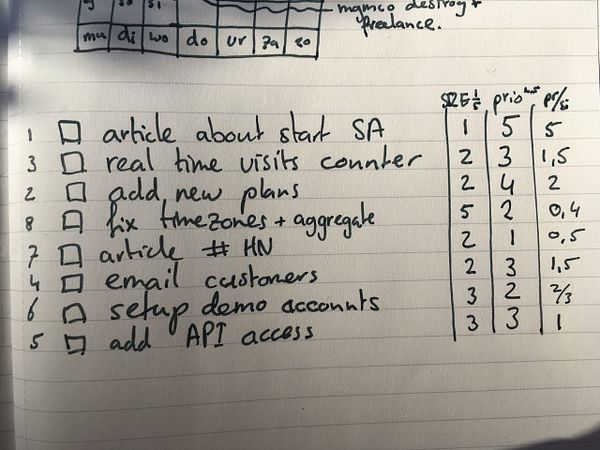 freelance.
ma di wo do vr za zo
SIZE prio pr/si
1 article about start SA 1 5 5
3 real time visits counter 2 3 1,5
2 add new plans 2 4 2
8 fix timezones + aggregate 5 2 0,4
7 article # HN 2 1 0,5
4 email customers 2 3 1,5
6 setup demo accounts 3 2 2/3
5 add API access 3 3 1